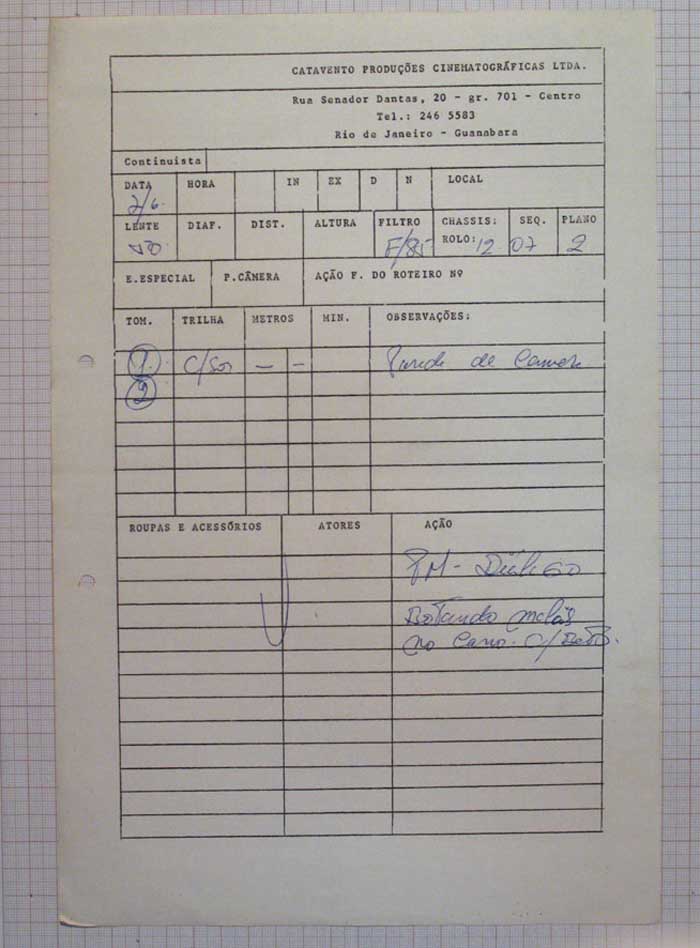 CATAVENTO PRODUÇÕES CINEMATOGRÁFICAS LTDA.
Rua Senador Dantas, 20 - gr. 701 - Centro
Tel.: 246 5583
Rio de Janeiro - Guanabara
Continuista
DATA HORA IN EX D N LOCAL
2/6
LENTE DIAF. DIST. ALTURA FILTRO CHASSIS: SEQ. PLANO
F/85 ROLO: 12 07 2
E.ESPECIAL P.CÂMERA AÇÃO F. DO ROTEIRO Nº
TOM. TRILHA METROS MIN. OBSERVAÇÕES:
1 C/Som — — de
2
ROUPAS E ACESSÓRIOS ATORES AÇÃO
PM -
Botando malas
no carro. C/